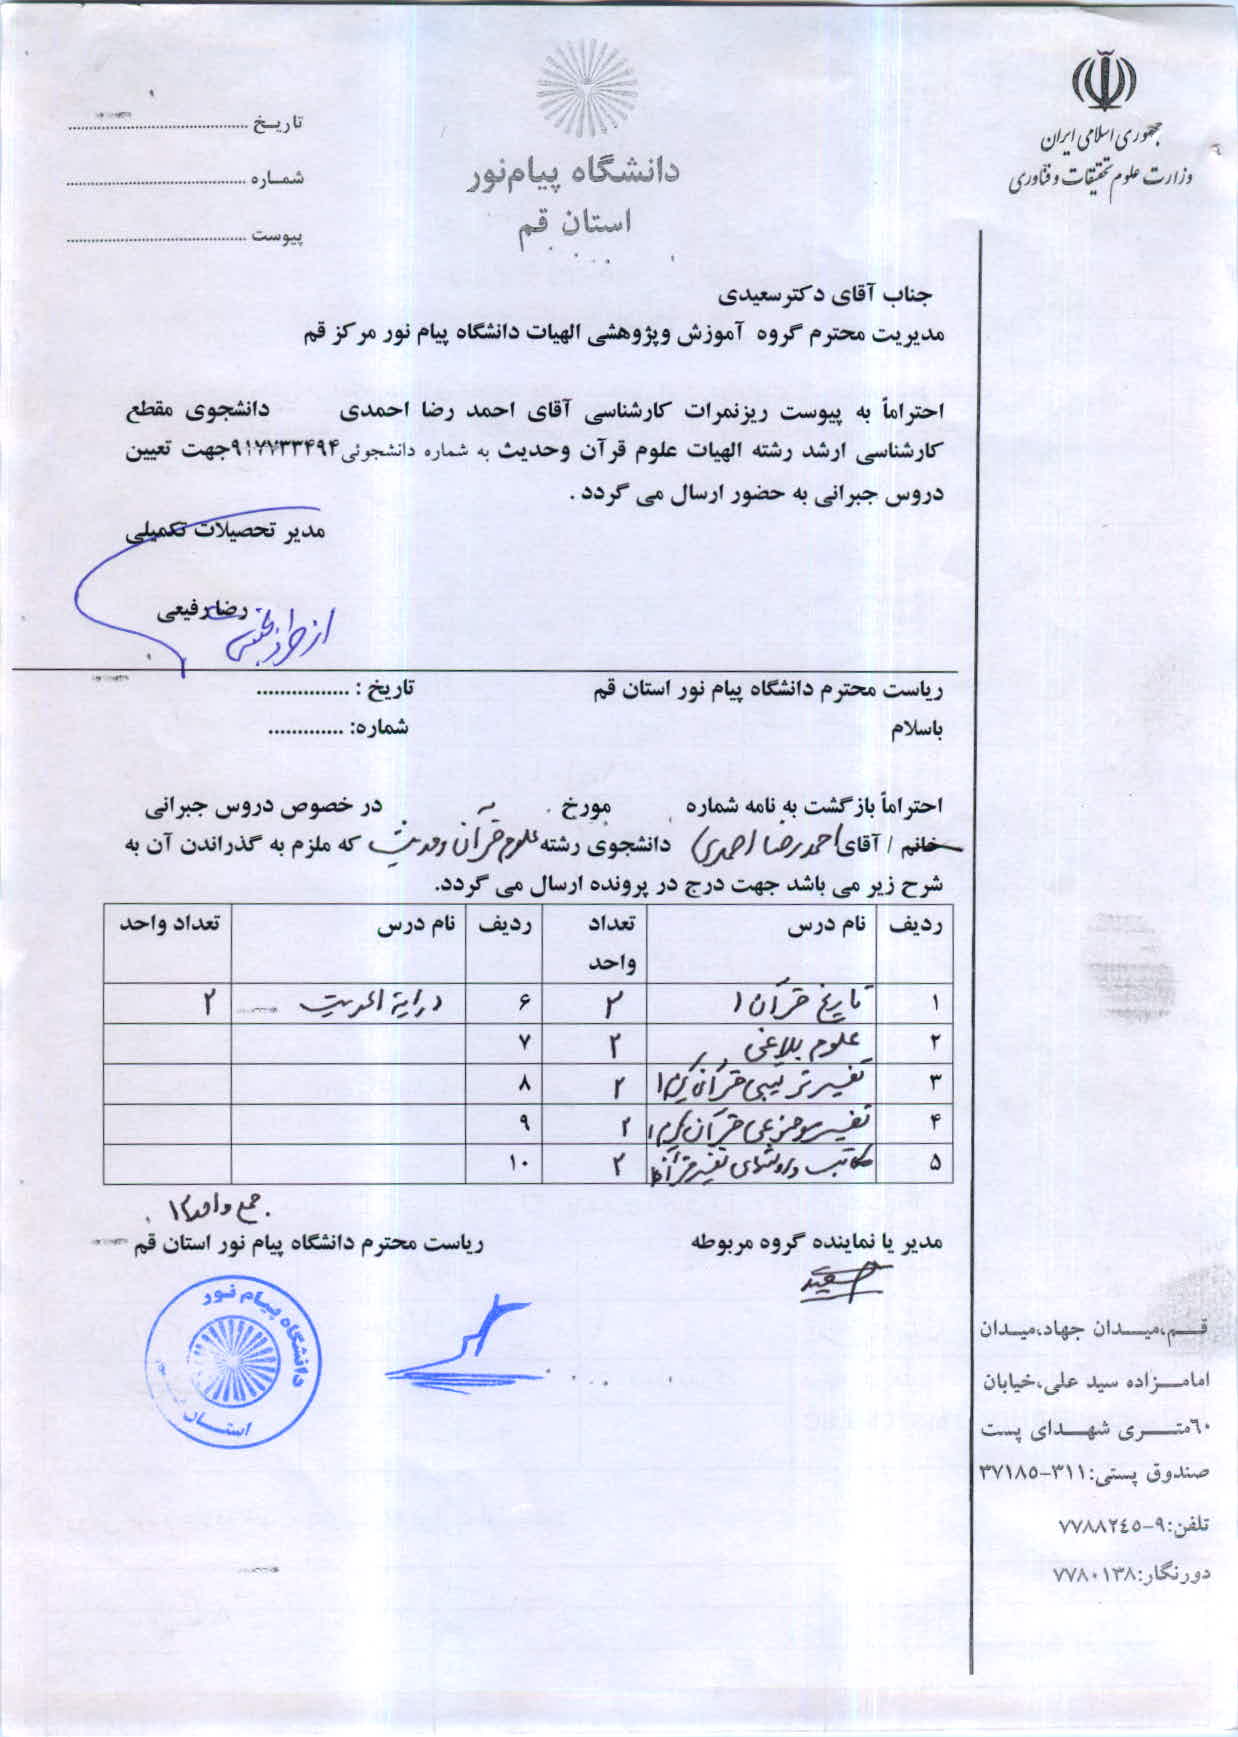 جمهوری اسلامی ایران
وزارت علوم تحقیقات و فناوری
دانشگاه پیام‌نور
استان قم
تاریخ ............
شماره ............
پیوست ............
جناب آقای دکترسعیدی
مدیریت محترم گروه آموزش وپژوهشی الهیات دانشگاه پیام نور مرکز قم
احتراماً به پیوست ریزنمرات کارشناسی آقای احمد رضا احمدی دانشجوی مقطع
کارشناسی ارشد رشته الهیات علوم قرآن وحدیث به شماره دانشجوئی۹۱۷۷۳۳۴۹۴جهت تعیین
دروس جبرانی به حضور ارسال می گردد .
مدیر تحصیلات تکمیلی
رضا رفیعی
از طرف
ریاست محترم دانشگاه پیام نور استان قم تاریخ : ................
باسلام شماره: .............
احتراماً بازگشت به نامه شماره مورخ در خصوص دروس جبرانی
خانم / آقای احمدرضا احمدی دانشجوی رشته علوم قرآن وحدیث که ملزم به گذراندن آن به
شرح زیر می باشد جهت درج در پرونده ارسال می گردد.
ردیف نام درس تعداد واحد ردیف نام درس تعداد واحد
۱ تاریخ قرآن ۱ ۲ ۶ درایة الحدیث ۲
۲ علوم بلاغی ۲ ۷
۳ تفسیر ترتیبی قرآن کریم ۱ ۲ ۸
۴ تفسیر موضوعی قرآن کریم ۱ ۲ ۹
۵ مکاتب و روشهای تفسیر قرآن ۲ ۱۰
جمع واحد ۱۲
مدیر یا نماینده گروه مربوطه ریاست محترم دانشگاه پیام نور استان قم
سعیدی
دانشگاه پیام نور
استان
قم،میدان جهاد،میدان
امامزاده سید علی،خیابان
۶۰متری شهدای پست
صندوق پستی:۳۱۱-۳۷۱۸۵
تلفن:۹-۷۷۸۸۲٤٥
دورنگار:۷۷۸۰۱۳۸